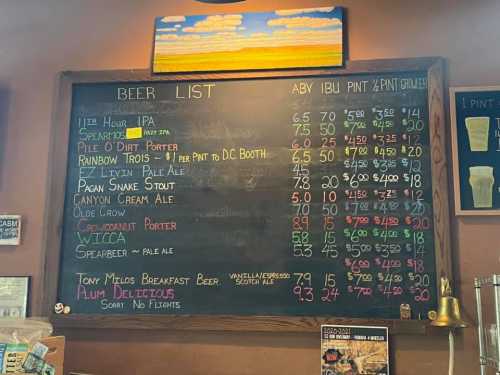 BEER LIST ABV IBU PINT ½ PINT GROWLER
11TH HOUR IPA 6.5 70 $5.00 $3.50 $14
SPEARMOS HAZY IPA 7.5 50 $7.00 $4.50 $20
PILE O'DIRT PORTER 6.0 25 $4.50 $3.25 $13
RAINBOW TROIS - $1 PER PINT TO D.C. BOOTH 6.5 50 $7.00 $4.50 $20
EZ LIVIN PALE ALE 4.5
PAGAN SNAKE STOUT 7.8 20 $6.00 $4.00 $18
CANYON CREAM ALE 5.0 10 $4.50 $3.25
OLDE CROW 7.0 50 $7.00
CROWCONUT PORTER 8.9 15 $7.00 $4.50 $20
WICCA 5.8 15 $6.00 $4.00 $18
SPEARBEER ~ PALE ALE 5.3 45 $5.00 $3.50 $14
$6.00 $4.00 $18
TONY MILO'S BREAKFAST BEER VANILLA/ESPRESSO SCOTCH ALE 7.9 15 $7.00 $4.50 $20
PLUM DELICIOUS 9.3 24 $7.00 $4.50 $20
SORRY NO FLIGHTS
1 PINT
CASM
2020-2021